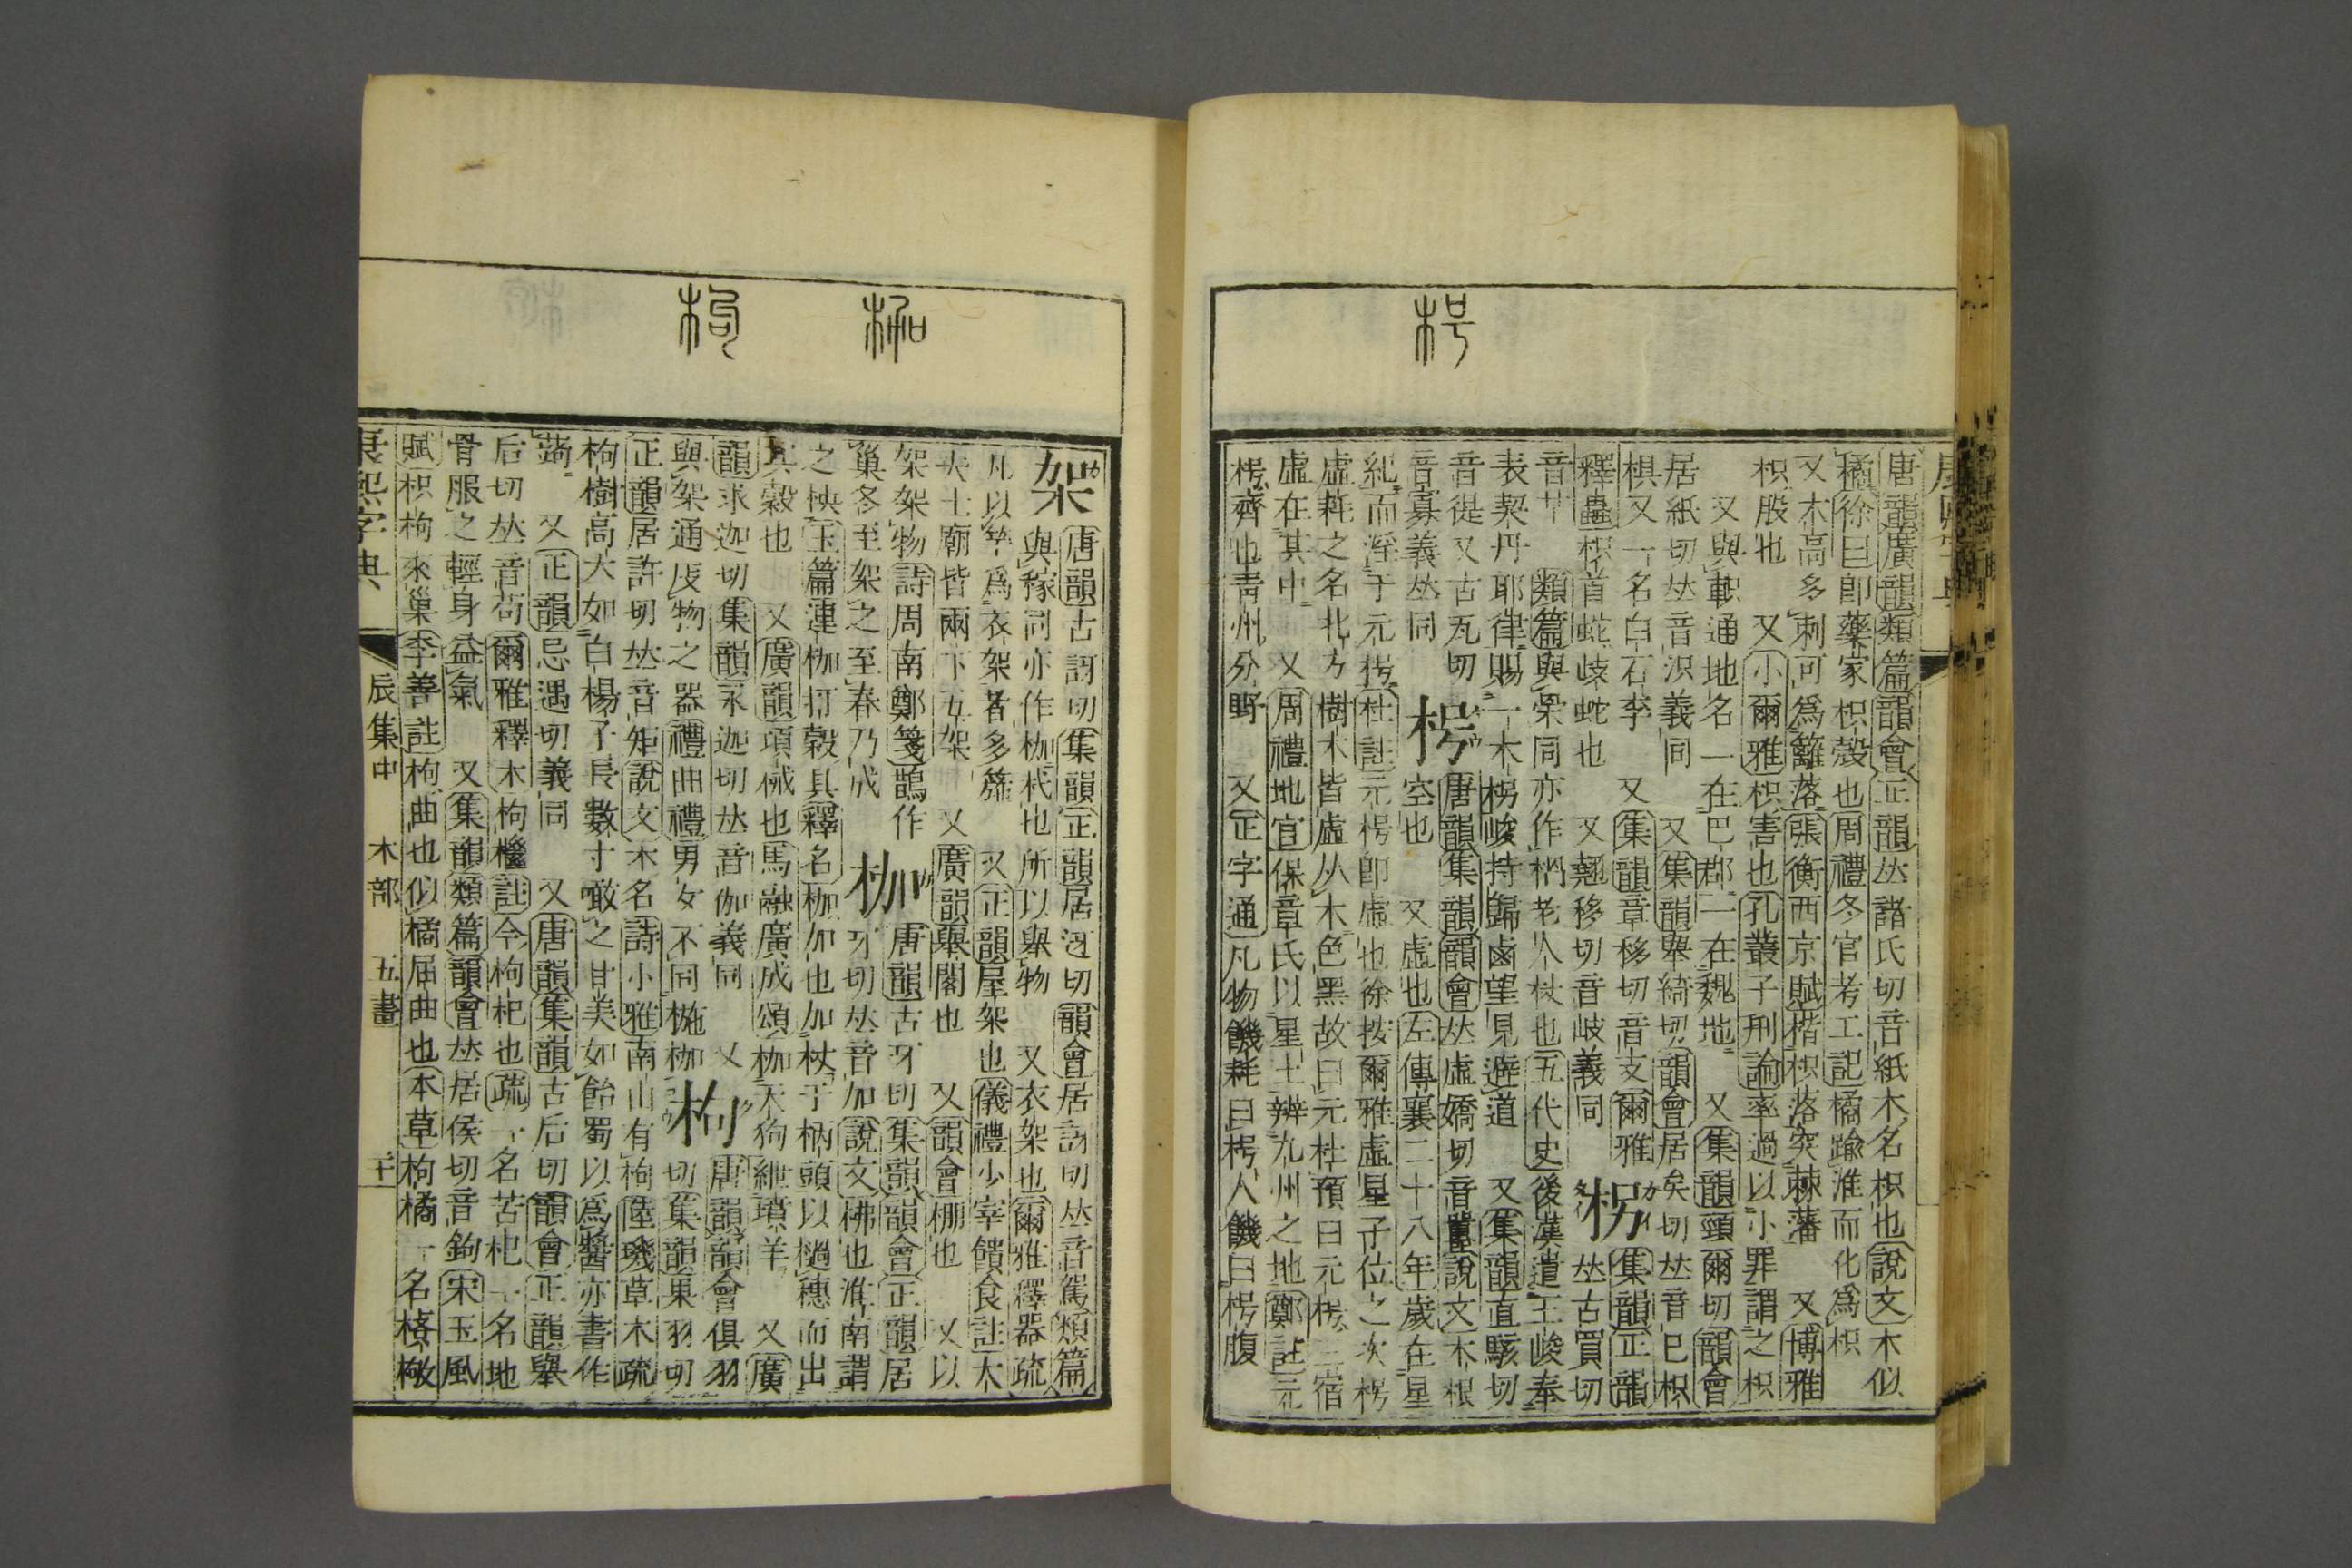 枵
唐韻廣韻類篇韻會正韻𠀤諸氏切音紙木名枳也說文木似
橘徐曰卽藥家枳殼也周禮冬官考工記橘踰淮而化爲枳
又木高多刺可爲籬落張衡西京賦楷枳落突棘藩 又博雅
枳股也 又小爾雅枳害也孔叢子刑論率過以小罪謂之枳
又與軹通地名一在巴郡一在魏地 又集韻頸爾切韻會
居紙切𠀤音汦義同 又集韻舉綺切韻會居矣切𠀤音巳枳
椇又一名白石李 又集韻章移切音支爾雅
釋蟲枳首蛇歧蛇也 又翹移切音岐義同
枴
集韻正韻
𠀤古買切
音𠁥類篇與罘同亦作柺老人杖也五代史後漢遣王峻奉
表契丹耶律賜一木枴峻持歸鹵望見避道 又集韻直駭切
音徥又古瓦切
音寡義𠀤同
枵
唐韻集韻韻會𠀤虛嬌切音囂說文木根
空也 又虛也左傳襄二十八年歲在星
紀而淫于元枵杜註元枵卽虛也徐按爾雅虛星子位之次枵
虛耗之名北方樹木皆虛从木色黑故曰元杜預曰元枵三宿
虛在其中 又周禮地官保章氏以星土辨九州之地鄭註元
枵齊也靑州分野 又正字通凡物饑耗曰枵人饑曰枵腹
枷
枸
架
唐韻古訝切集韻正韻居迓切韻會居訝切𠀤音駕類篇
與稼同亦作枷杙也所以舉物 又衣架也爾雅釋器疏
凡以竿爲衣架者多籭 又正韻屋架也儀禮少宰饋食註大
夫士廟皆兩下五架 又廣韻舉閣也 又韻會棚也 又以
架架物詩周南鄭箋鵲作
巢冬至架之至春乃成
枷
唐韻古牙切集韻韻會正韻居
牙切𠀤音加說文柫也淮南謂
之柍玉篇連枷打穀具釋名枷加也加杖于柄頭以撾穗而出
其穀也 又廣韻項械也馬融廣成頌枷天狗紲墳羊 又廣
韻求迦切集韻永迦切𠀤音伽義同 又
與架通庋物之器禮曲禮男女不同椸枷
枸
唐韻韻會俱羽
切集韻果羽切
正韻居許切𠀤音矩說文木名詩小雅南山有枸陸璣草木疏
枸樹高大如白楊子長數寸噉之甘美如飴蜀以爲醬亦書作
蒟 又正韻忌遇切義同 又唐韻集韻古后切韻會正韻舉
后切𠀤音苟爾雅釋木枸檵註今枸杞也疏一名苦杞一名地
骨服之輕身益氣 又集韻類篇韻會𠀤居侯切音鉤宋玉風
賦枳枸來巢李善註枸曲也似橘屈曲也本草枸橘一名枳椇
康熙字典 辰集中 木部 五畫